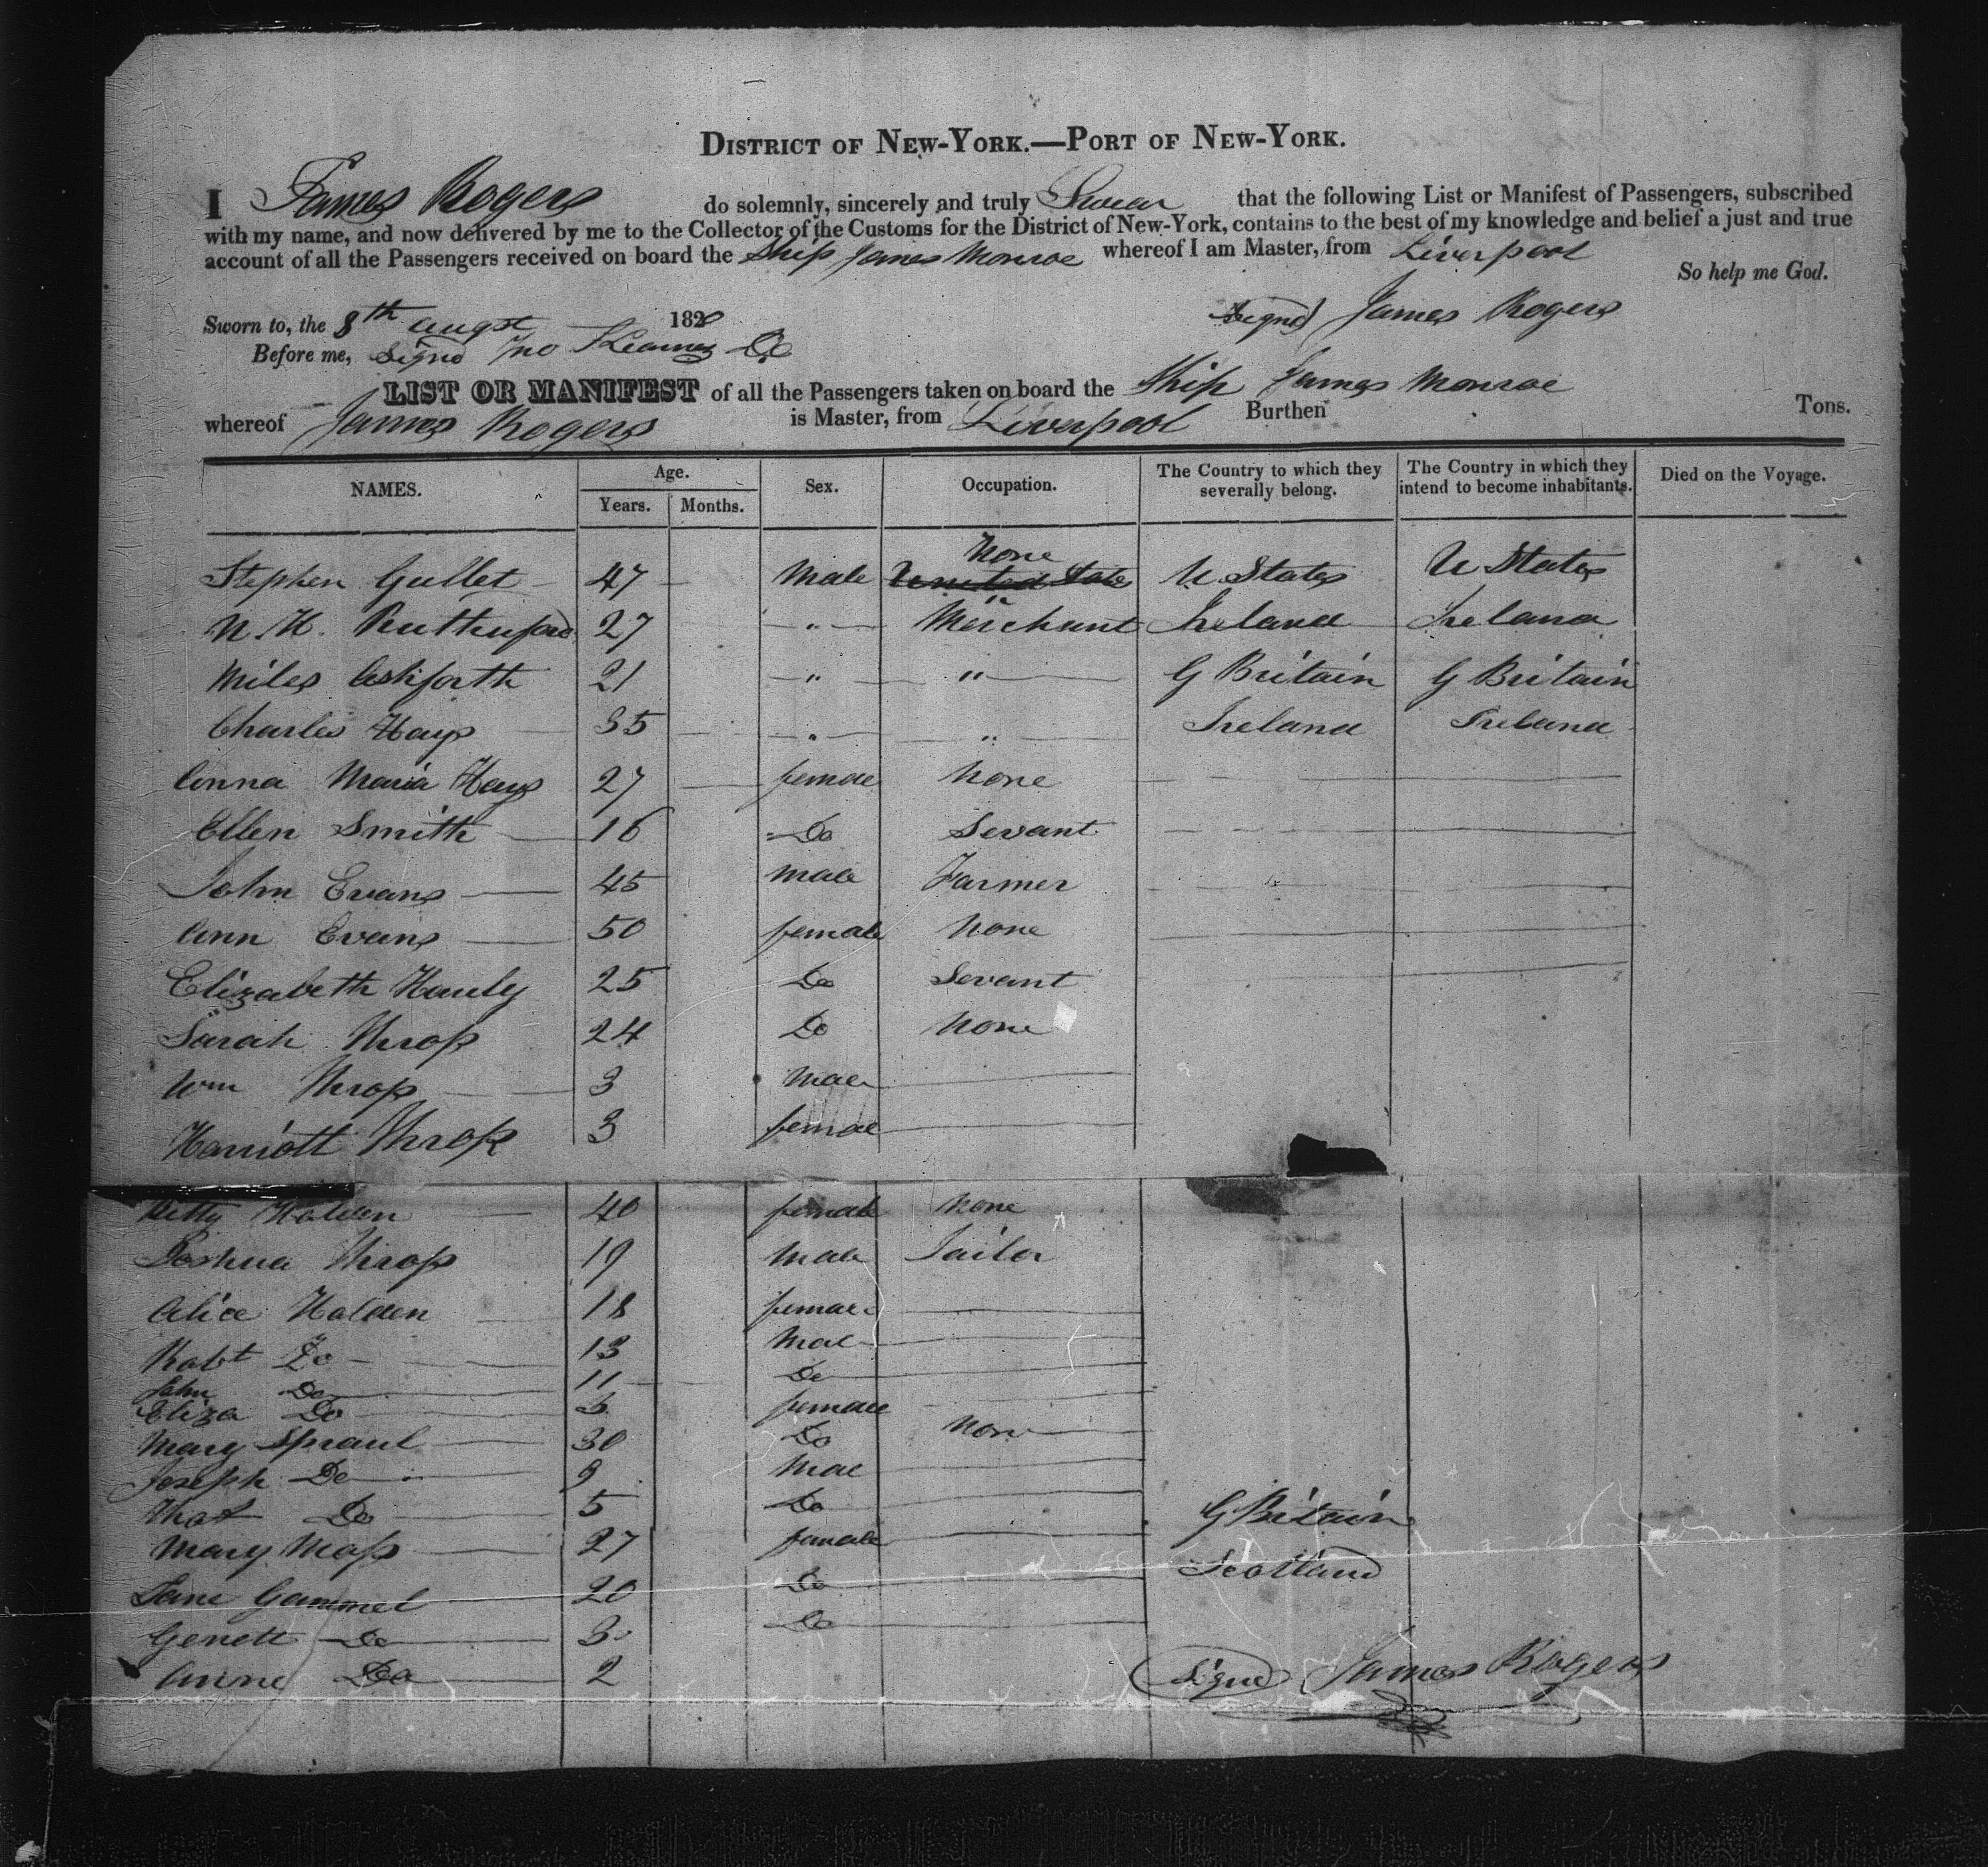 DISTRICT OF NEW-YORK.—PORT OF NEW-YORK.
I James Rogers do solemnly, sincerely and truly Swear that the following List or Manifest of Passengers, subscribed
with my name, and now delivered by me to the Collector of the Customs for the District of New-York, contains to the best of my knowledge and belief a just and true
account of all the Passengers received on board the Ship James Monroe whereof I am Master, from Liverpool
So help me God.
Sworn to, the 8th Augst 182 Signed James Rogers
Before me, Signd Jno
LIST OR MANIFEST of all the Passengers taken on board the Ship James Monroe
whereof James Rogers is Master, from Liverpool Burthen Tons.
NAMES. Age. Years. Months. Sex. Occupation. The Country to which they severally belong. The Country in which they intend to become inhabitants. Died on the Voyage.
Stephen Gullet 47 Male None United State U States U States
N. H. Rutherford 27 " Merchant Ireland Ireland
Miles Ashforth 21 " " G Britain G Britain
Charles Hays 35 " " Ireland Ireland
Anna Maria Hays 27 female None
Ellen Smith 16 Do Servant
John Evans 45 Male Farmer
Ann Evans 50 female None
Elizabeth 25 Do Servant
Sarah Throp 24 Do None
Wm Throp 3 Male
Harriott Throp 3 female
Betty Holden 40 female None
Joshua Throp 19 Male Tailor
Alice Holden 18 female
Robt Do 13 Male
John Do 11 Do
Eliza Do 3 female
Mary Spraul 30 Do None
Joseph Do 9 Male
Do 5 Do
Mary Moss 27 female G Britain
Jane Gammel 20 Do Scotland
Genett Do 3 Do
Anne Do 2
Signed James Rogers